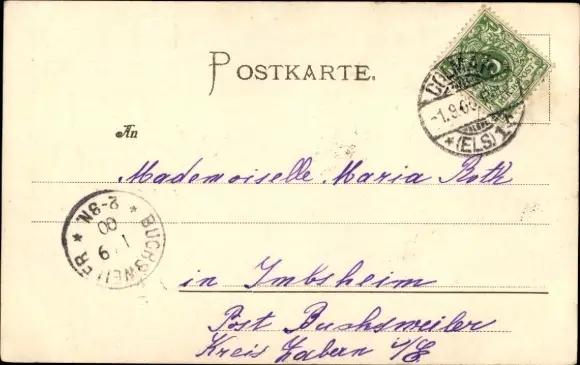 POSTKARTE.
COLMAR
-1.9.00
*(ELS)1
An
Mademoiselle Maria Roth
BUCHSWEILER
1 9
00
2-8N.
in Imbsheim
Post Buchsweiler
Kreis Zabern i/E